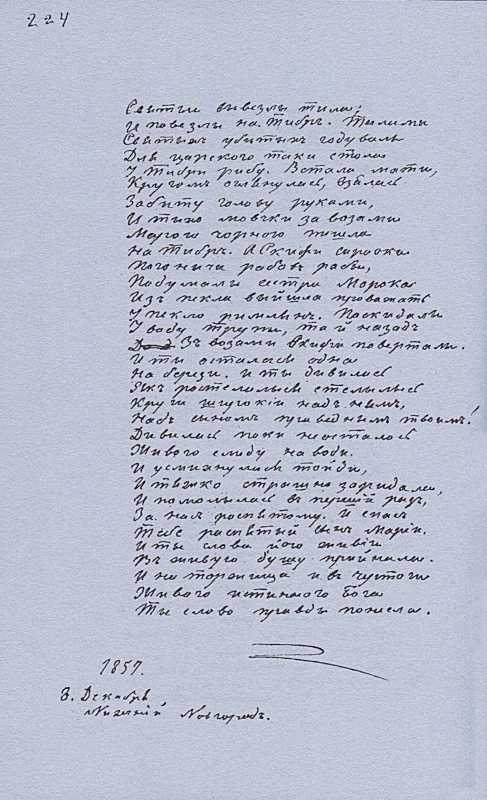 224
Святыи вывезлы тила;
И повезлы на Тибръ. Тилами
Святыхъ убитыхъ годувалы
Для царского таки стола
У Тибри рибу. Встала мати,
Кругомъ оглянулась, взялась
За биту голову руками,
И тыхо мовчки за возами
Марою чорною пишла
На Тибръ. А Скифи сироокы
Погоничи рабовъ рабы,
Подумалы сестра Морока
Изъ пекла выйшла провожать
У пекло римлянъ. Поскидалы
У воду трупы, та й назадъ
Зъ возами Скифи повертали.
И ты осталася одна
На берези. И ты дывилась
Якъростелялыся стелылысь
Круги широкіи надъ нимъ,
Надъ сыномъ праведнымъ твоимъ!
Дивилась поки не осталось
Живого слиду на води.
И усмихнулась ты тойди,
И тяжко страшно заридала,
И помолылась въ первый разъ,
За насъ роспятому. И спасъ
Тебе распятый сынъ Маріи.
И ты слова його живіи
Въ живую душу прийняла.
И на торжища и въ чертоги
Живого истинного Бога
Ты слово правды понесла.
1857.
8. Декабря
Нижний Новгородъ.